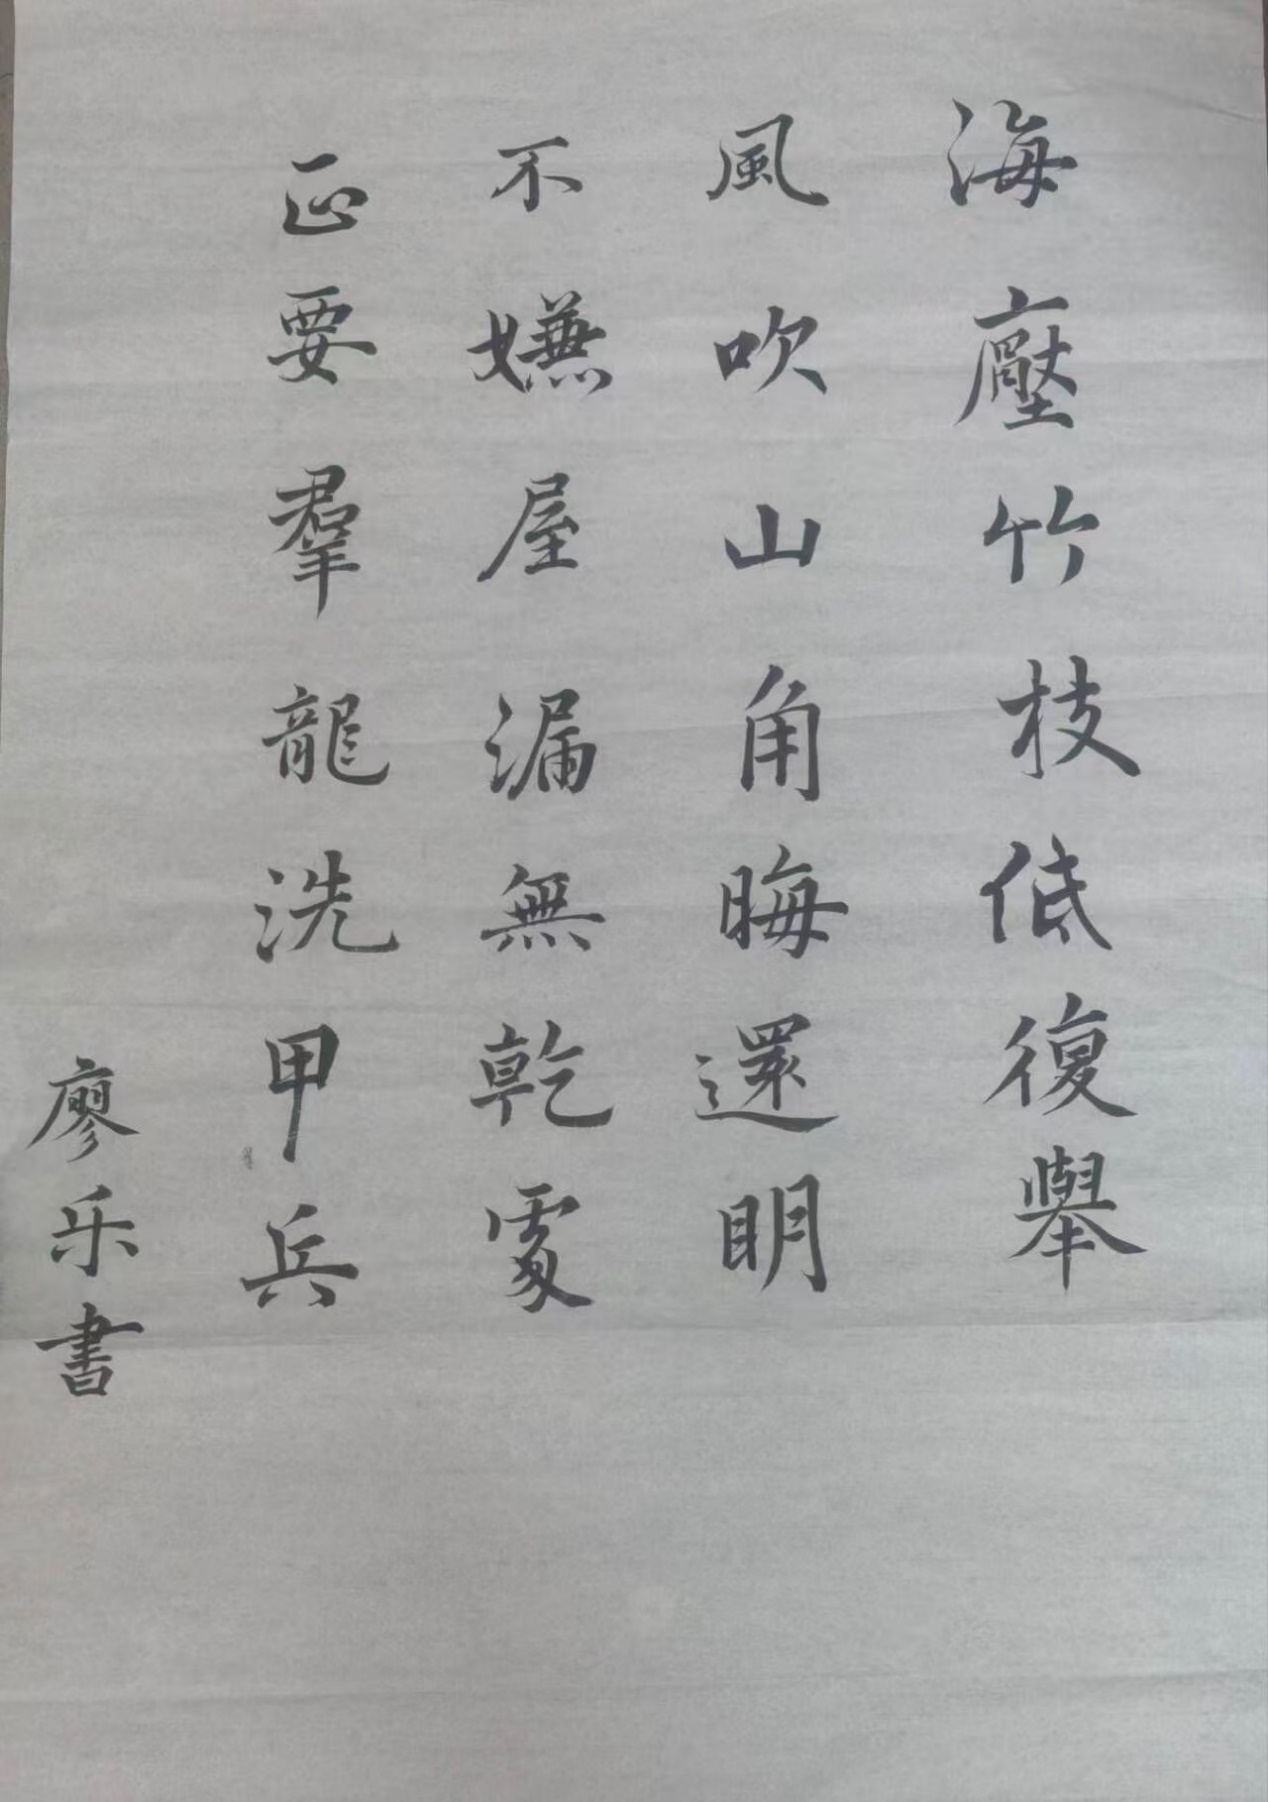 海壓竹枝低復舉
風吹山角晦還明
不嫌屋漏無乾處
正要羣龍洗甲兵
廖乐書